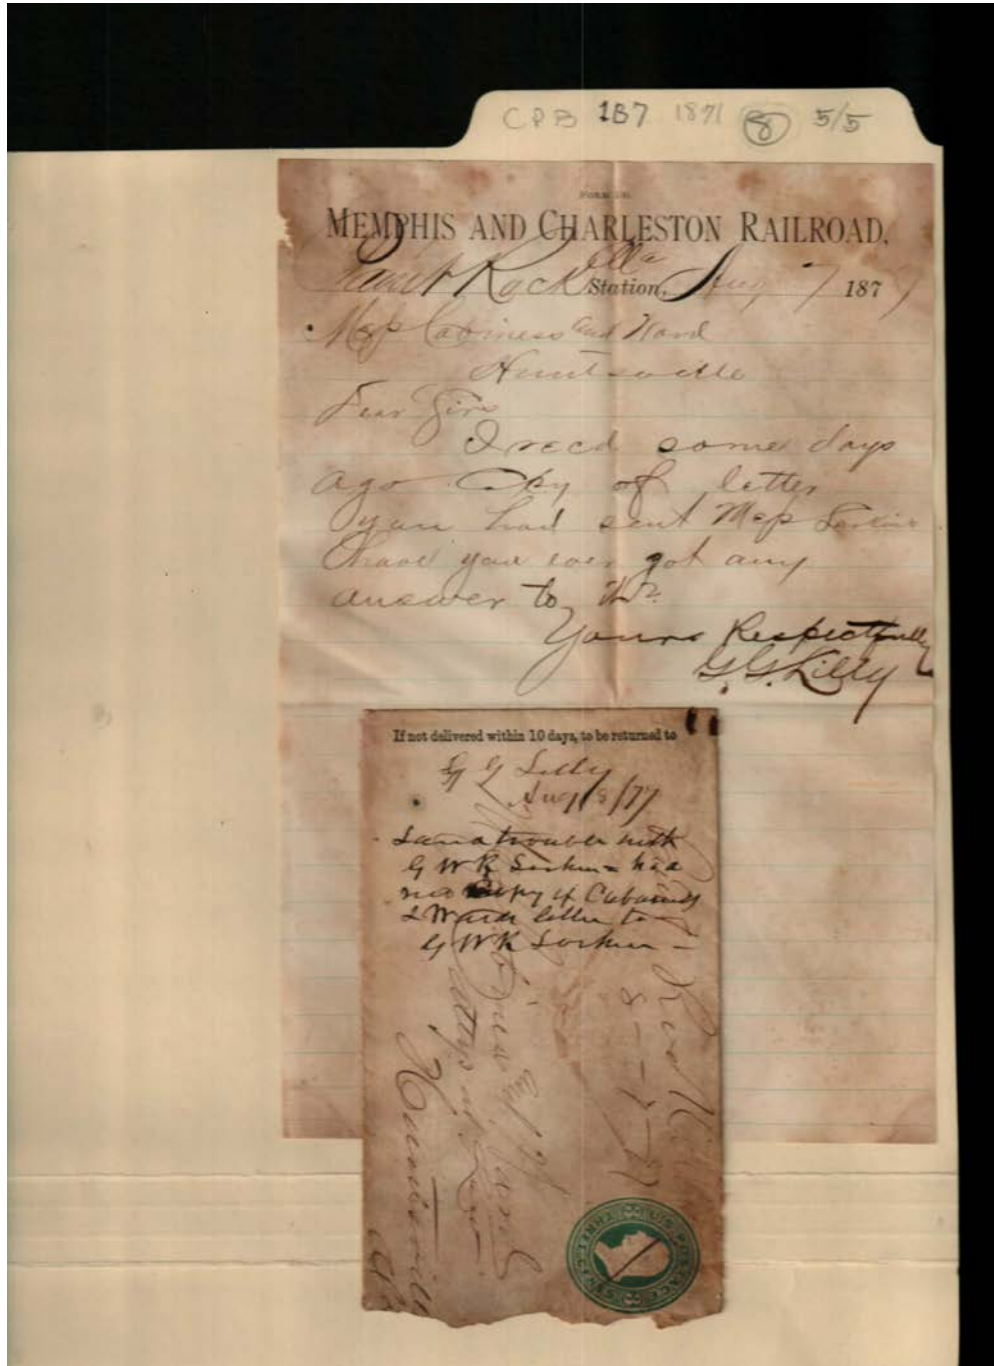 CPB 1B7 1871 8 5/5
MEMPHIS AND CHARLESTON RAILROAD,
Paint Rock Ala Station, Aug 7 1877
Mess Cabiness and Ward
Huntsville
Dear Sirs
I recd some days
ago Cpy of letter
you had sent Mess
have you ever got any
answer to it?
Yours Respectfully
G. G. Lilly
If not delivered within 10 days, to be returned to
G G Lilly
Aug 8/77
Land trouble with
G W R Larkin - has
recd Copy of Cabaniss
& Ward letter to
G W R Larkin -
Cabiness and Ward
Attys at Law
Huntsville
Ala
Paint Rock
8-7-77
U.S. POSTAGE
THREE CENTS